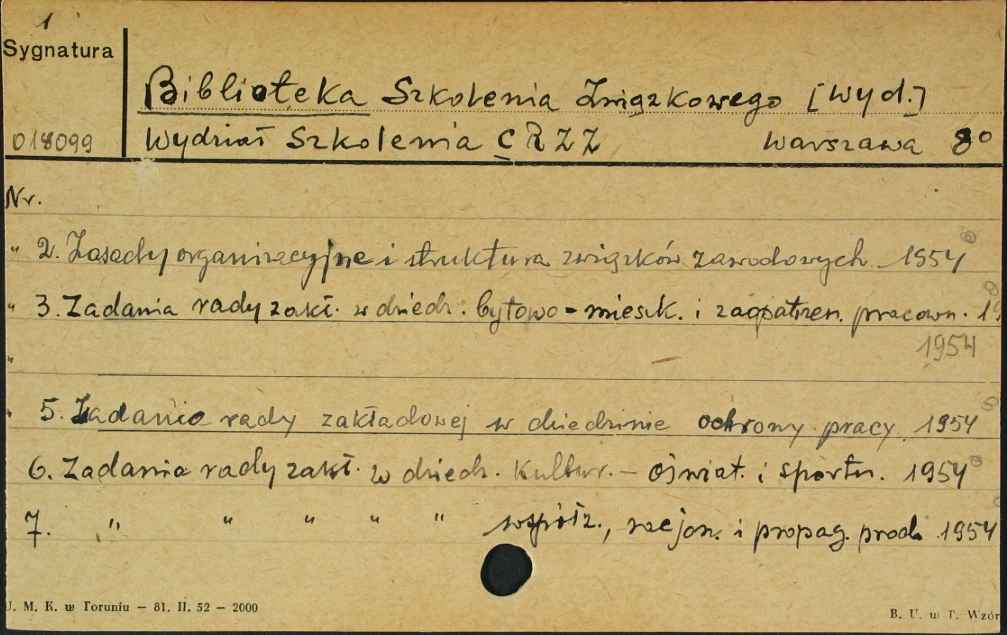 1
Sygnatura
Biblioteka Szkolenia Związkowego [Wyd.]
018099 Wydział Szkolenia CRZZ Warszawa 8°
Nr.
" 2. Zasady organizacyjne i struktura związków zawodowych 1954
" 3. Zadania rady zakł. w dziedz. bytowo-mieszk. i zaopatrzen. pracown.
1954
"
" 5. Zadania rady zakładowej w dziedzinie ochrony pracy 1954
6. Zadania rady zakł. w dziedz. kultur.-oświat. i sportu. 1954
7. " " " " " współz., racjon. i propag. prod. 1954
U. M. K. w Toruniu — 81. II. 52 — 2000
B. U. w T. Wzór